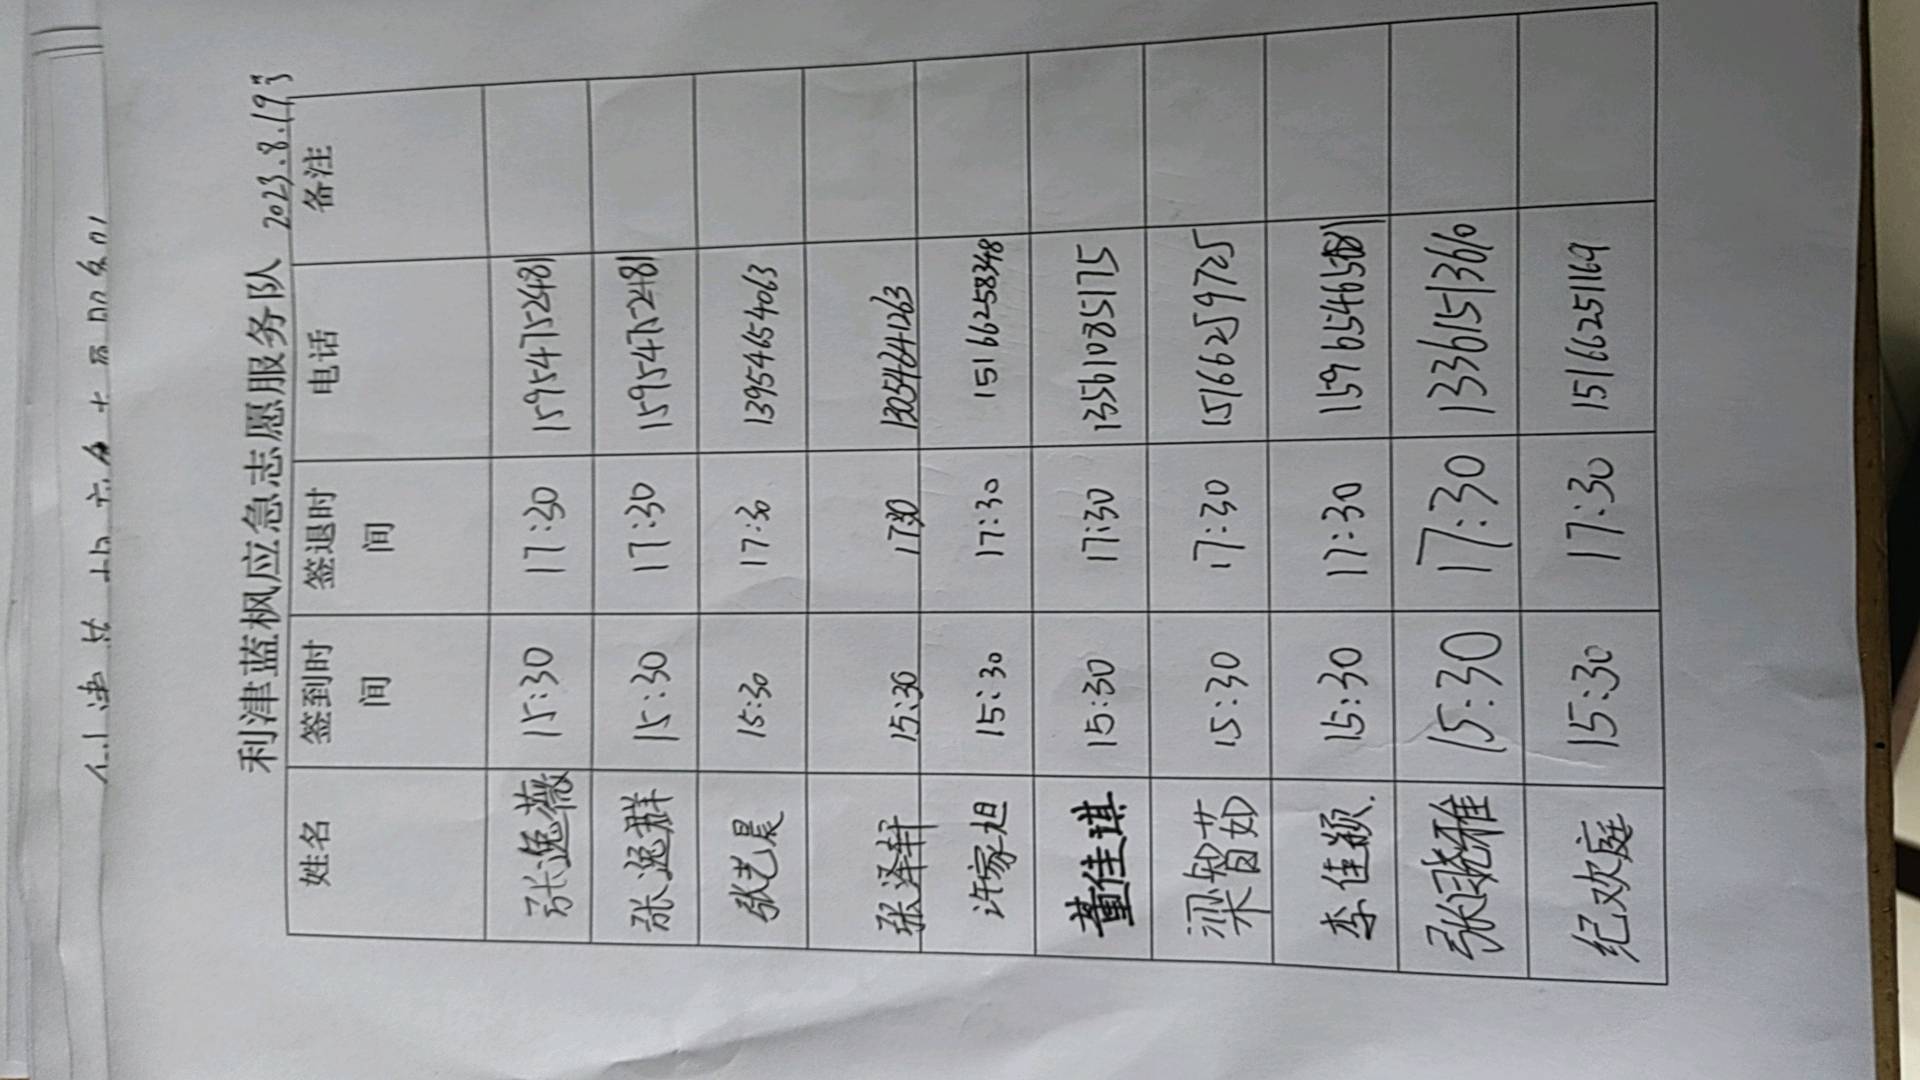 利津蓝枫应急志愿服务队 2023.8.19号
姓名 签到时间 签退时间 电话 备注
张逸薇 15:30 17:30 15954752481
张逸群 15:30 17:30 15954752481
张艺晨 15:30 17:30 13954654063
张泽轩 15:30 17:30
许家旭 15:30 17:30 15166258348
董佳琪 15:30 17:30 13561085175
梁智茹 15:30 17:30 15166259725
李佳颖. 15:30 17:30
张晓雅 15:30 17:30 13361513610
纪欢庭 15:30 17:30 15166251169